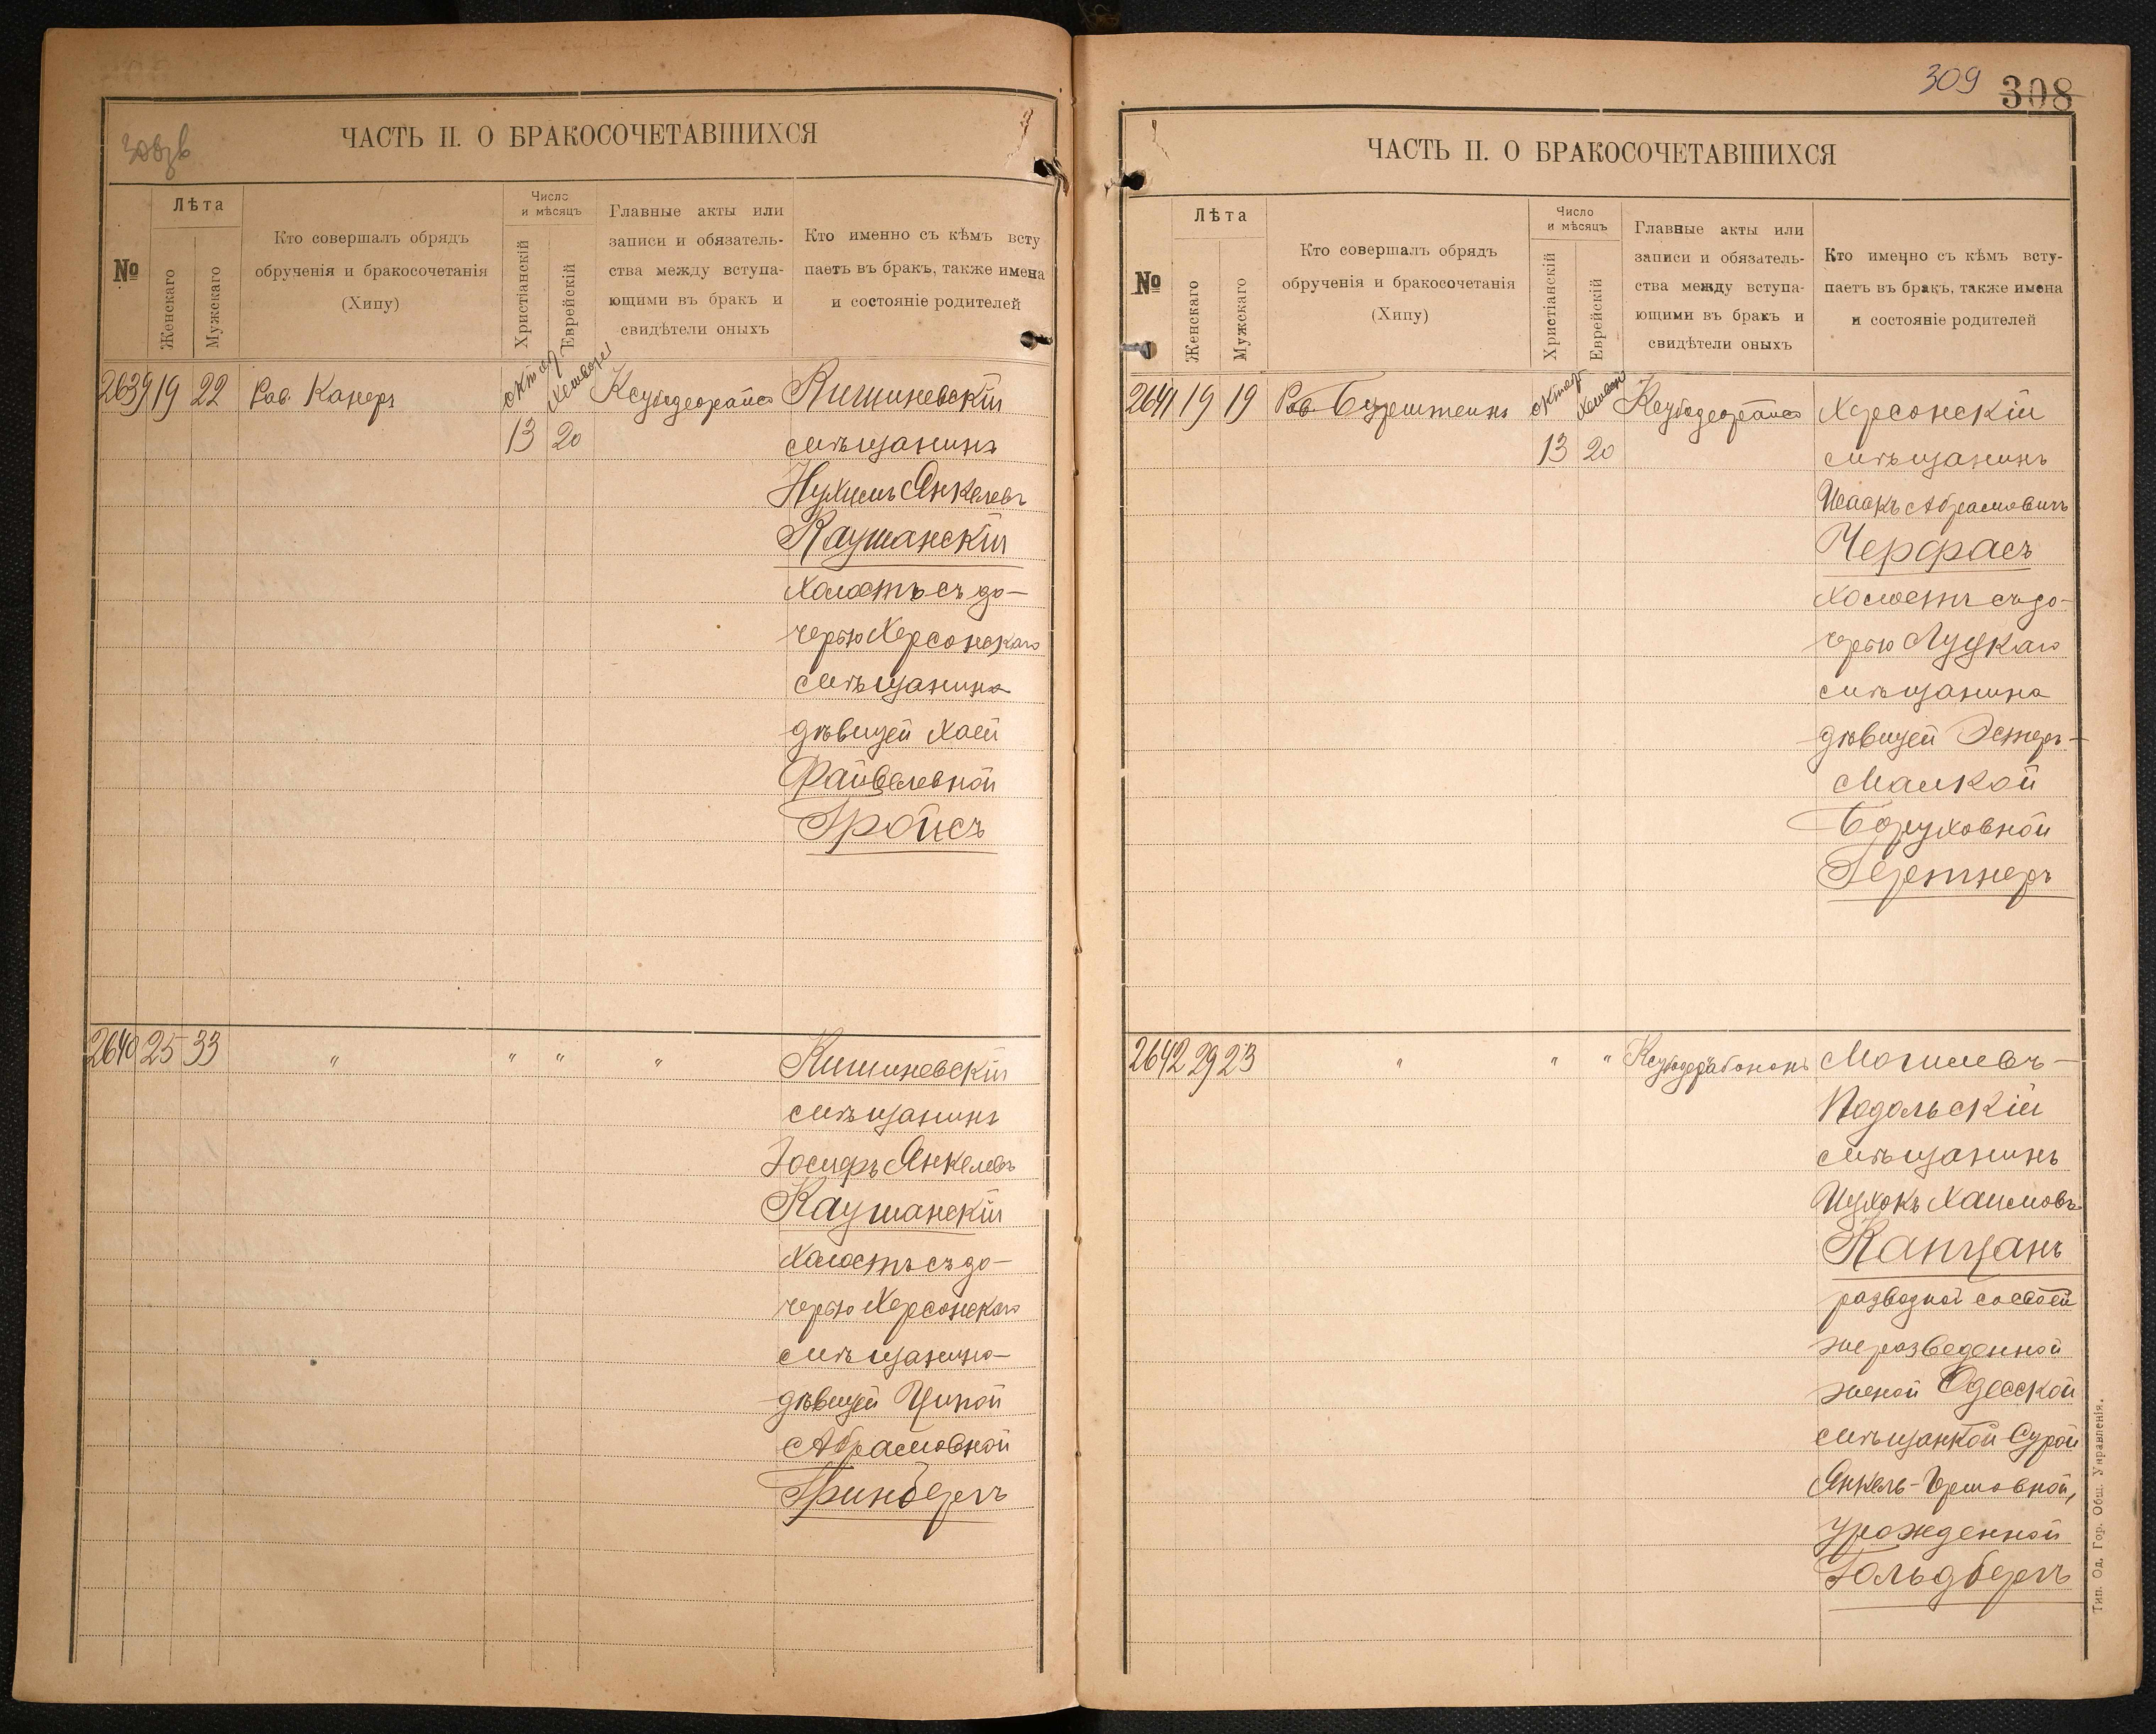 308зв
ЧАСТЬ II. О БРАКОСОЧЕТАВШИХСЯ
№
Лѣта
Женскаго
Мужскаго
Кто совершалъ обрядъ
обрученія и бракосочетанія
(Хипу)
Число
и мѣсяцъ
Христіанскій
Еврейскій
Главные акты или
записи и обязатель-
ства между вступа-
ющими въ бракъ и
свидѣтели оныхъ
Кто именно съ кѣмъ всту
паетъ въ бракъ, также имена
и состояніе родителей
2639 19 22 Рав. Канеръ октяб Хешвон Ксубедеорайсо Кишиневскій
13 20 мѣщанинъ
Нухимъ Янкелевъ
Каушанскій
холостъ съ до-
черью Херсонскаго
мѣщанина
дѣвицей Хаей
Файвелевной
Гройсъ
2640 25 33 " " " " Кишиневскій
мѣщанинъ
Іосифъ Янкелевъ
Каушанскій
холостъ съ до-
черью Херсонскаго
мѣщанина
дѣвицей Ципой
Абрамовной
Гринбергъ
309 308
ЧАСТЬ II. О БРАКОСОЧЕТАВШИХСЯ
№
Лѣта
Женскаго
Мужскаго
Кто совершалъ обрядъ
обрученія и бракосочетанія
(Хипу)
Число
и мѣсяцъ
Христіанскій
Еврейскій
Главные акты или
записи и обязатель-
ства между вступа-
ющими въ бракъ и
свидѣтели оныхъ
Кто именно съ кѣмъ всту-
паетъ въ бракъ, также имена
и состояніе родителей
2641 19 19 Рав Бурштейнъ октяб Хешвон Ксубедеорайсо Херсонскій
13 20 мѣщанинъ
Исаакъ Абрамовичъ
Черфасъ
холостъ съ до-
черью Луцкаго
мѣщанина
дѣвицей Эстеръ-
Малкой
Боруховной
Гертнеръ
2642 29 23 " " " Ксубедерабононъ Могилевъ-
Подольскій
мѣщанинъ
Ицхокъ Хаимовъ
Капцанъ
разводной со своей
же разведенной
женой Одесской
мѣщанкой Сурой
Янкель-Гершовной,
урожденной
Гольдбергъ
Тип. Од. Гор. Общ. Управленія.